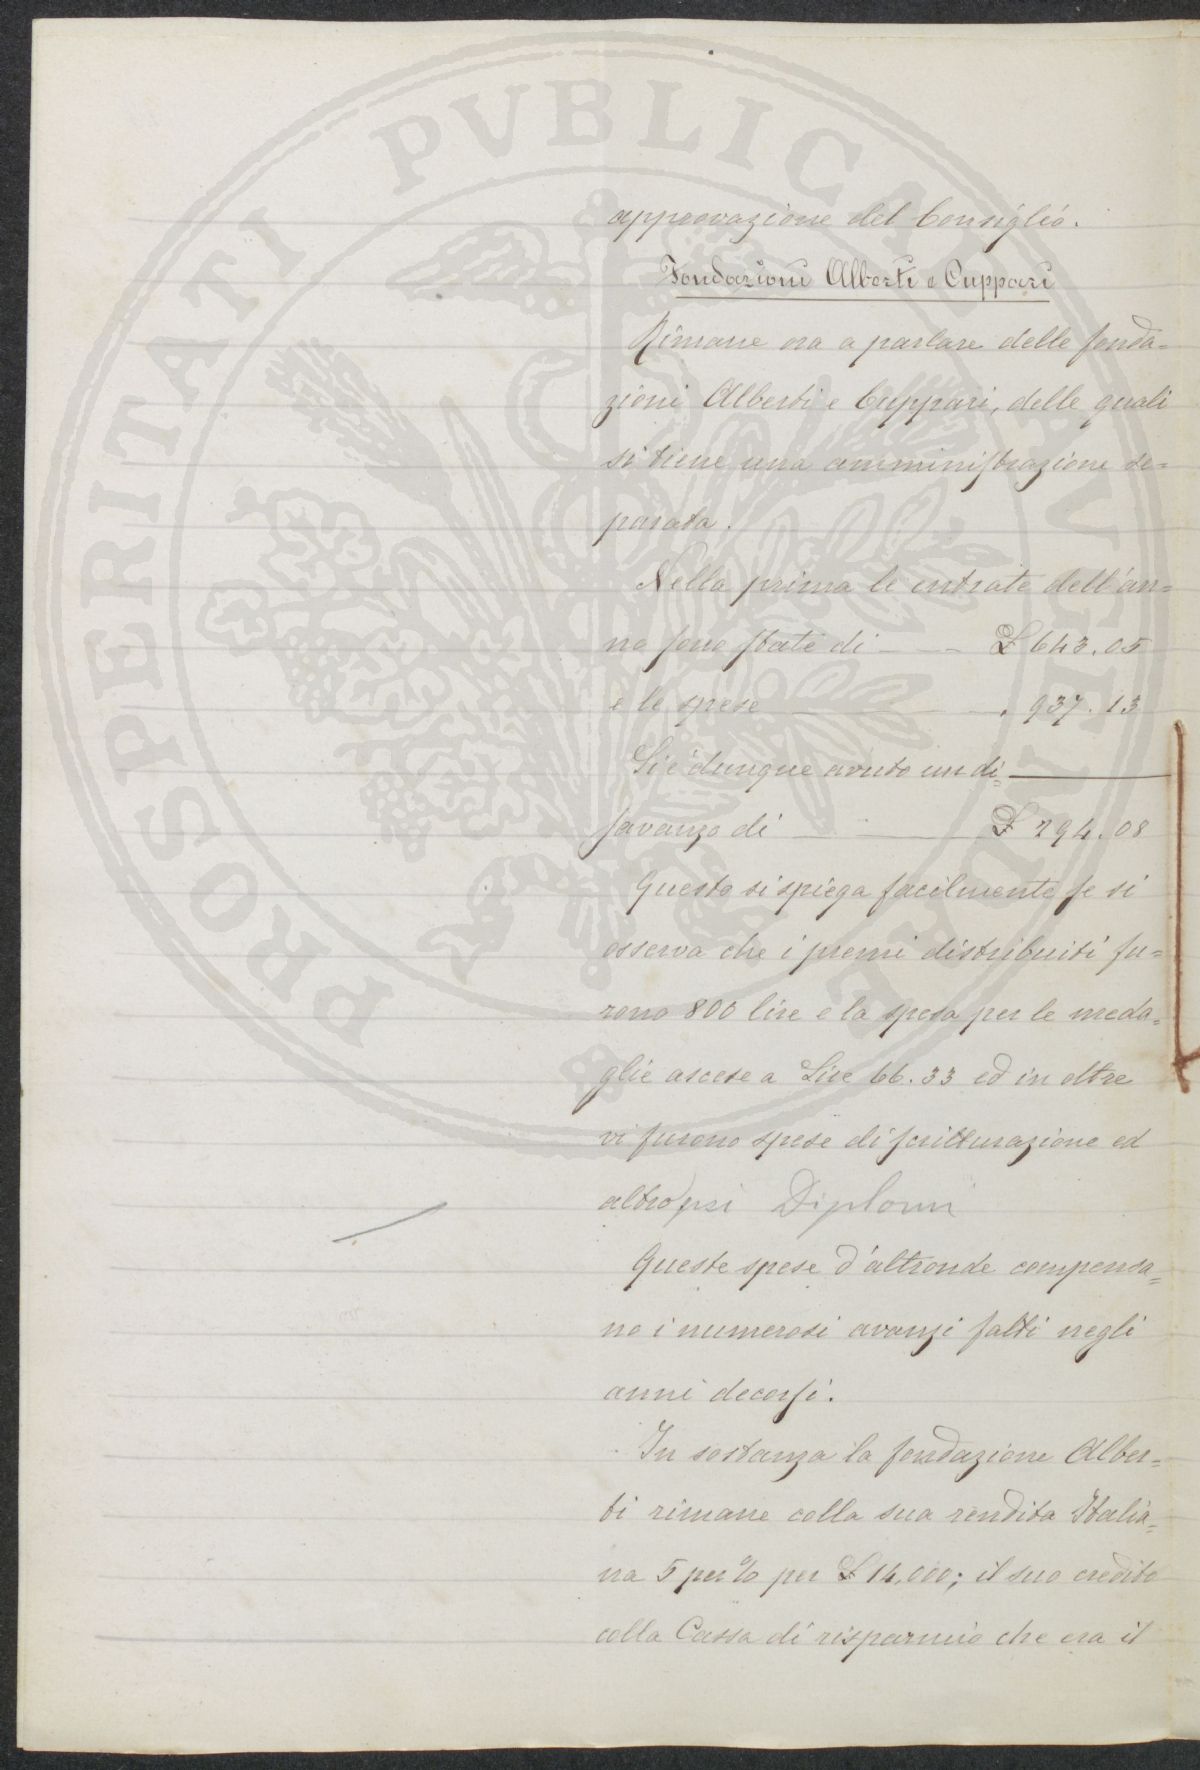 PROSPERITATI PVBLICAE AVGENDAE
approvazione del Consiglio.
Fondazioni Alberti e Cuppari
Rimane ora a parlare delle fonda=
zioni Alberti e Cuppari, delle quali
si tiene una amministrazione se=
parata.
Nella prima le entrate dell'an=
no sono state di — — £ 643.05
e le spese — " 937.13
Si è dunque avuto un di=
savanzo di — £ 294.08
Questo si spiega facilmente se si
osserva che i premi distribuiti fu=
rono 800 lire e la spesa per le meda=
glie ascese a Lire 66.33 ed in oltre
vi furono spese di scritturazione ed
altro pei Diplomi
Queste spese d'altronde compensa=
no i numerosi avanzi fatti negli
anni decorsi.
In sostanza la fondazione Alber=
ti rimane colla sua rendita Italia=
na 5 per % per £ 14,000; il suo credito
colla Cassa di risparmio che era il